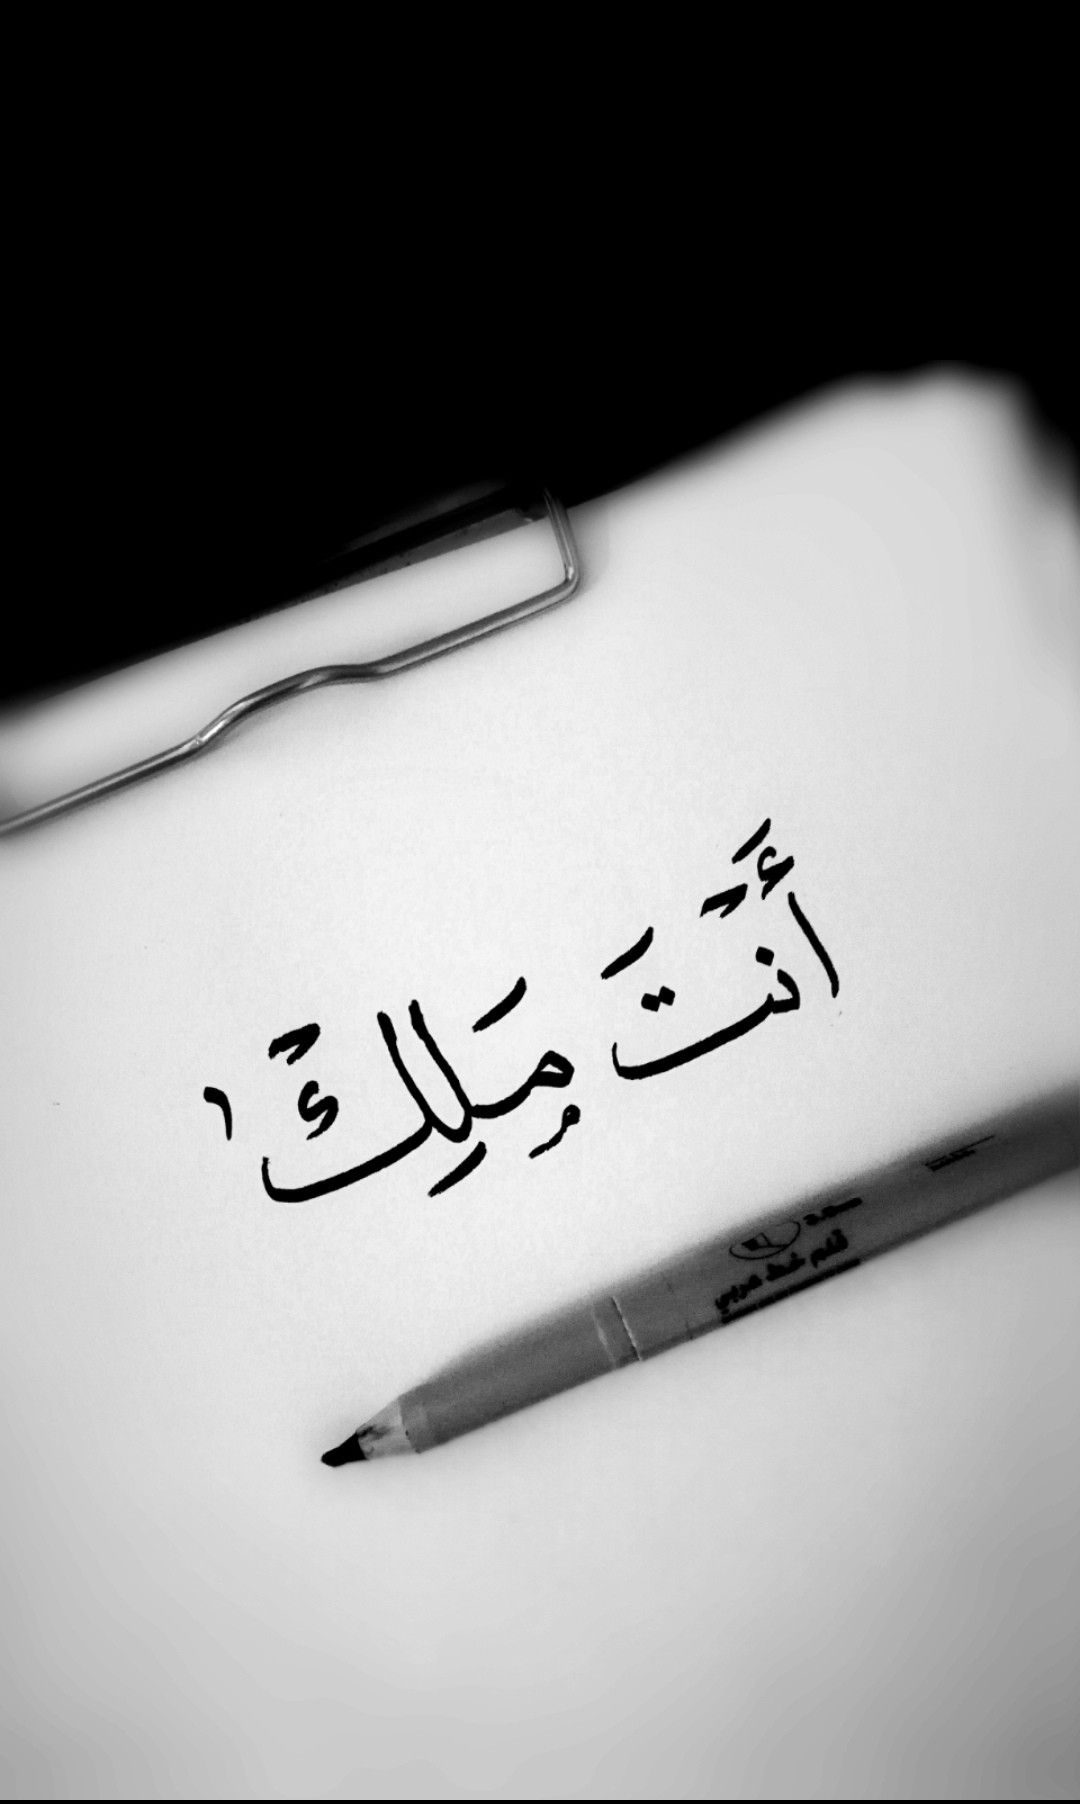 أَنْتَ مَلِكْ
قلم خط عربي